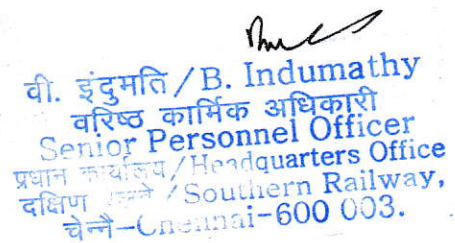 वी. इंदुमति / B. Indumathy
वरिष्ठ कार्मिक अधिकारी
Senior Personnel Officer
प्रधान कार्यालय / Headquarters Office
दक्षिण रेलवे / Southern Railway,
चेन्नै-Chennai-600 003.